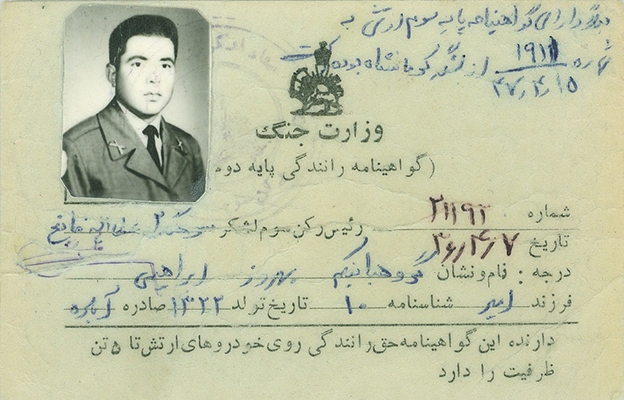 دارای گواهینامه پایه سوم ارتش به
شماره ۱۹۱۱ از لشگر کرمانشاه بوده است
۴۷٫۴٫۱۵
وزارت جنگ
(گواهینامه رانندگی پایه دوم
شماره ۲۱۱۹۲
رئیس رکن سوم لشکر سرهنگ ۲
تاریخ ۳۶٫۴٫۷
درجه : نام و نشان گروهبانیکم بهروز ابراهیمی
فرزند امیر شناسنامه ۱۰ تاریخ تولد ۱۳۲۲ صادره
دارنده این گواهینامه حق رانندگی روی خودروهای ارتش تا ۵ تن
ظرفیت را دارد